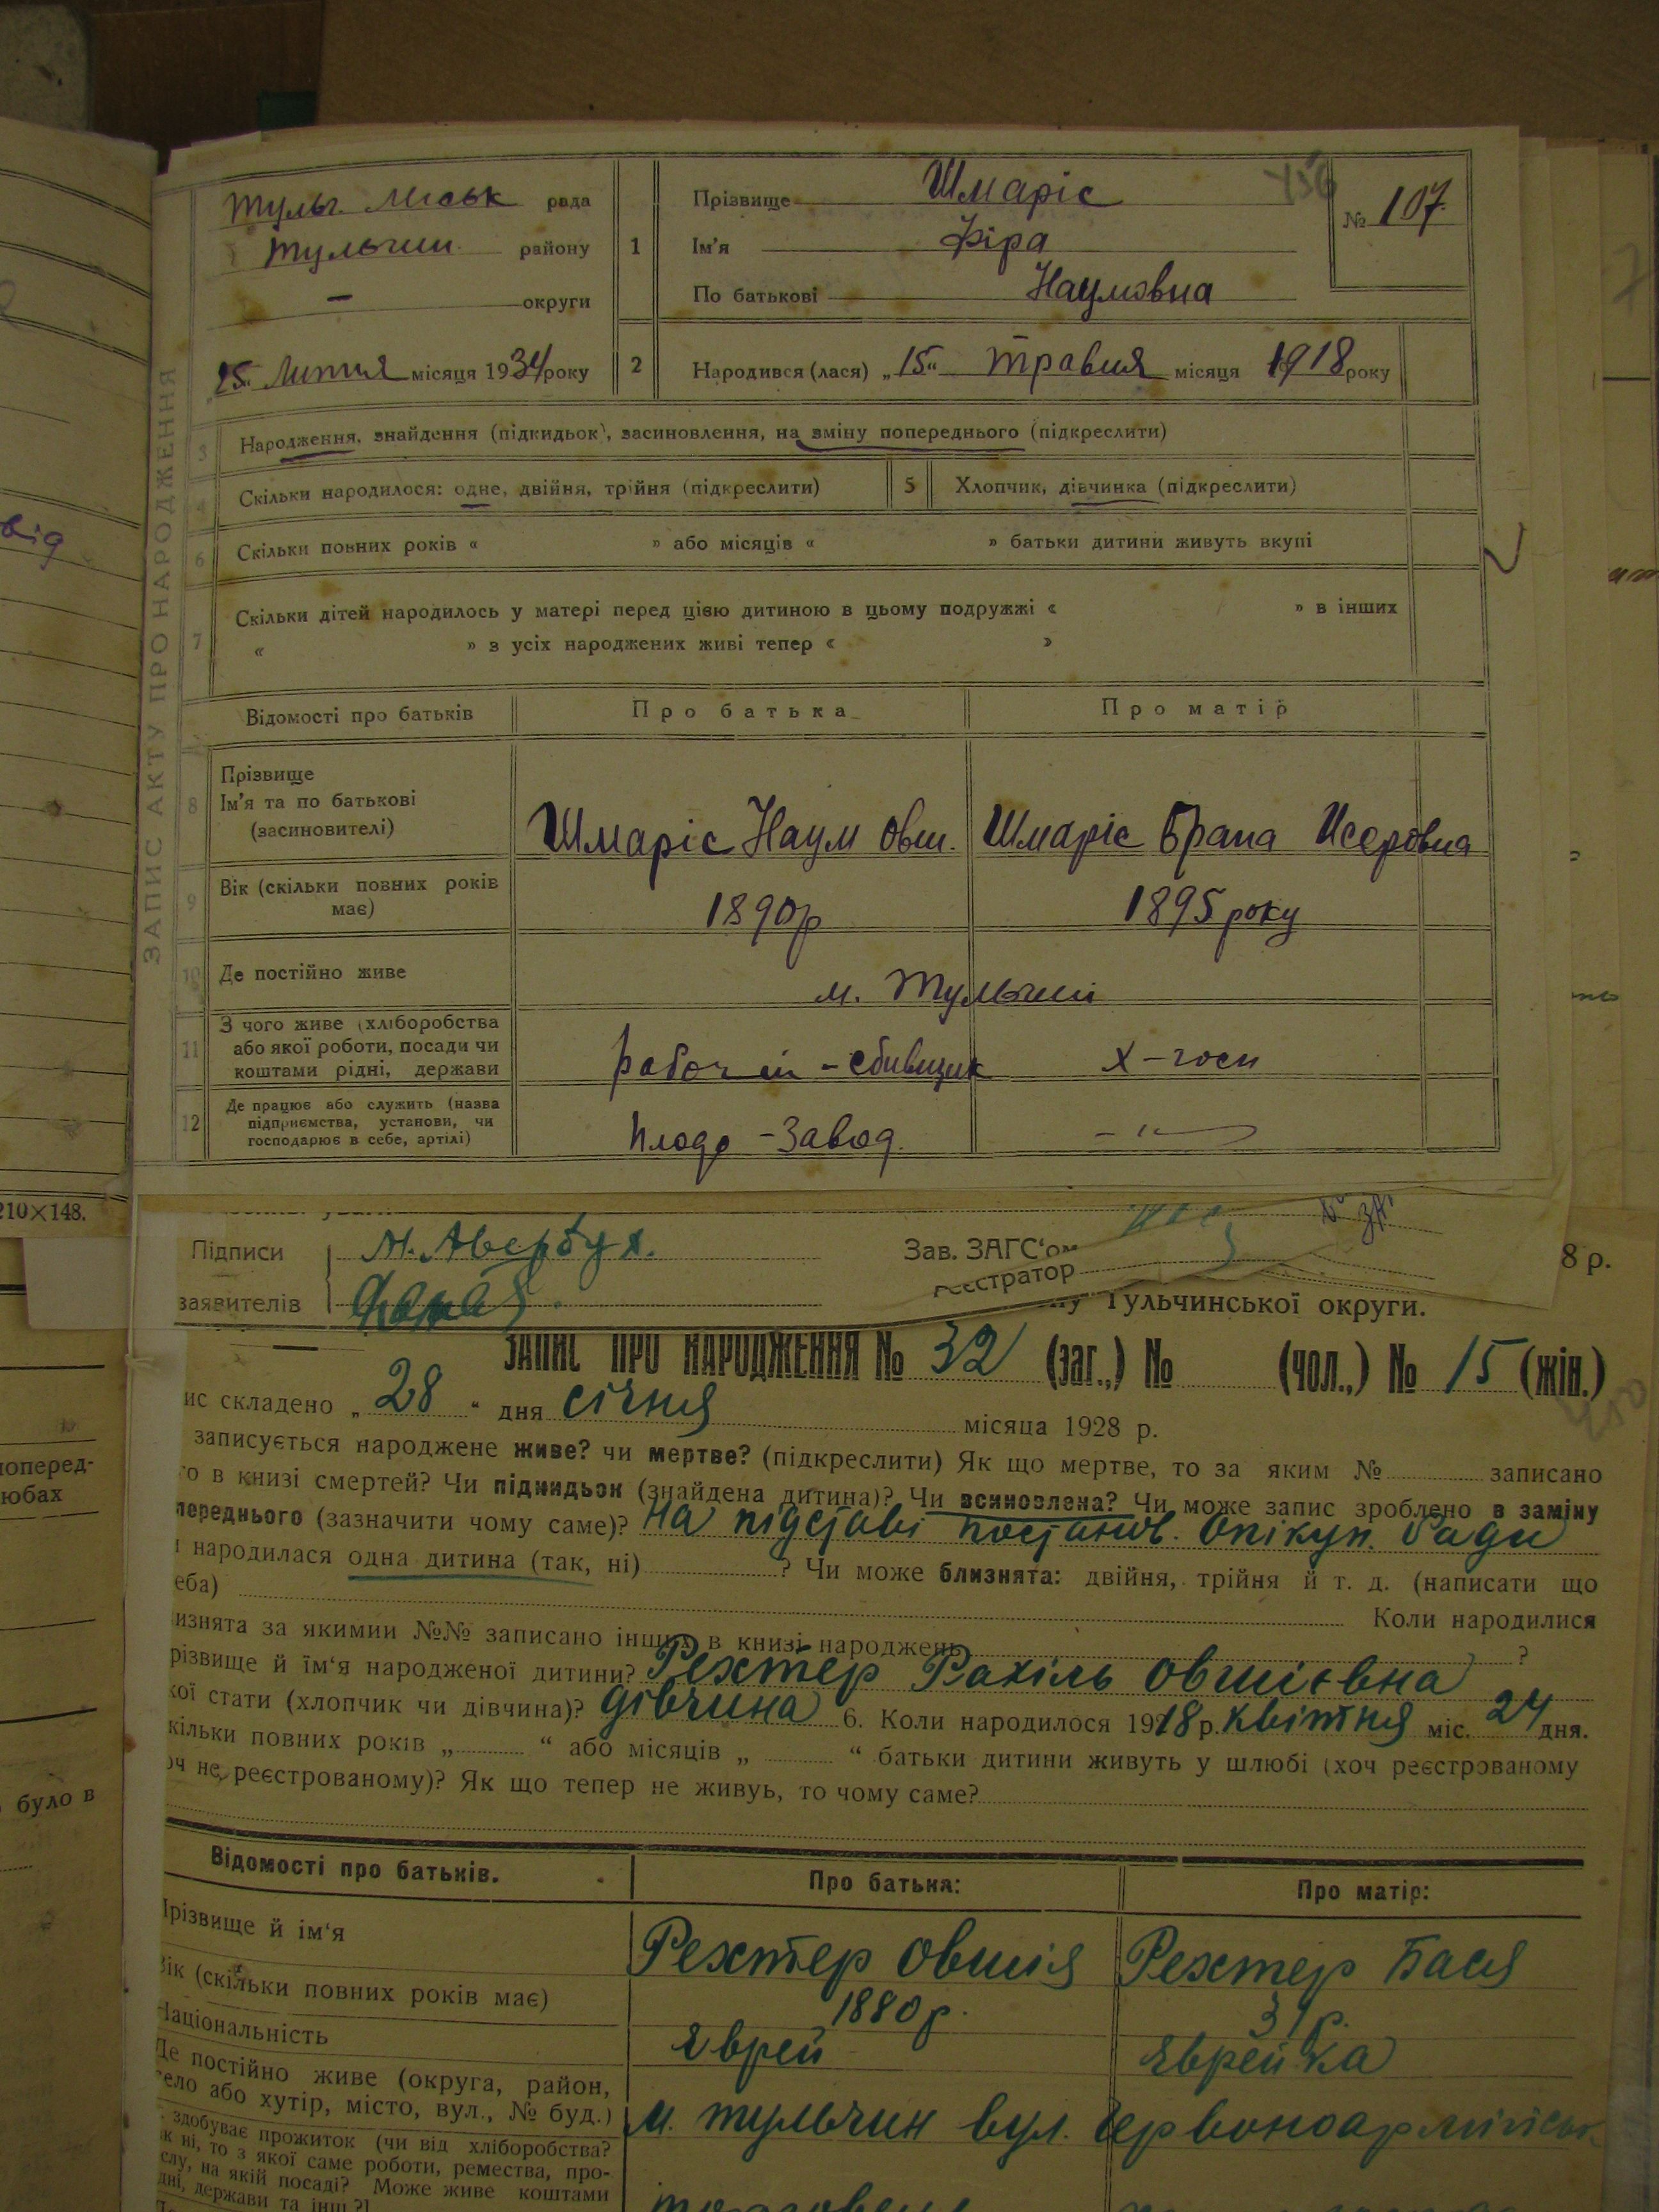 ЗАПИС АКТУ ПРО НАРОДЖЕННЯ
Тульч. Міськ рада
Тульчин району
— округи
25 Липня місяця 1934 року
1
Прізвище Шмаріс
Ім'я Фіра
По батькові Наумовна
№ 107.
2 Народився (лася) „15“ травня місяця 1918 року
3 Народження, знайдення (підкидьок), засиновлення, на зміну попереднього (підкреслити)
4 Скільки народилося: одне, двійня, трійня (підкреслити)
5 Хлопчик, дівчинка (підкреслити)
6 Скільки повних років « » або місяців « » батьки дитини живуть вкупі
7 Скільки дітей народилось у матері перед цією дитиною в цьому подружжі « » в інших
« » з усіх народжених живі тепер « »
Відомості про батьків Про батька Про матір
8 Прізвище
Ім'я та по батькові
(засиновителі)
Шмаріс Наум Овш. Шмаріс Брана Исеровна
9 Вік (скільки повних років
має)
1890р 1895 року
10 Де постійно живе м. Тульчин
11 З чого живе (хліборобства
або якої роботи, посади чи
коштами рідні, держави
Рабочий - сбивщик х-госп
12 Де працює або служить (назва
підприємства, установи, чи
господарює в себе, артілі)
Плодо - Завод.
210×148.
Підписи М. Авербух.
заявителів
Зав. ЗАГС‘ом
реєстратор
8 р.
Тульчинської округи.
ЗАПИС ПРО НАРОДЖЕННЯ № 32 (заг.,) № (чол.,) № 15 (жін.)
ис складено „28“ дня січня місяца 1928 р.
записується народжене живе? чи мертве? (підкреслити) Як що мертве, то за яким № записано
го в книзі смертей? Чи підкидьок (знайдена дитина)? Чи всиновлена? Чи може запис зроблено в заміну
переднього (зазначити чому саме)? На підставі постанов. Опікун. Ради
и народилася одна дитина (так, ні) ? Чи може близнята: двійня, трійня й т. д. (написати що
еба) Коли народилися
изнята за якимии №№ записано інших в книзі народжень ?
різвище й їм‘я народженої дитини? Рехтер Рахіль Овшієвна
кої стати (хлопчик чи дівчина)? дівчина 6. Коли народилося 1918 р. квітня міс. 24 дня.
кільки повних років „ “ або місяців „ “ батьки дитини живуть у шлюбі (хоч реєстрованому
оч не реєстрованому)? Як що тепер не живуь, то чому саме?
Відомості про батьків. Про батька: Про матір:
Прізвище й ім‘я Рехтер Овшія Рехтер Бася
Вік (скільки повних років має) 1880 р.
Національність Єврей Єврейка
Де постійно живе (округа, район,
село або хутір, місто, вул., № буд.)
м. Тульчин вул. Червоноармійськ
здобуває прожиток (чи від хліборобства?
як ні, то з якої саме роботи, ремества, про-
слу, на якій посаді? Може живе коштами
дні, держави та інш.?)
поперед-
юбах
було в